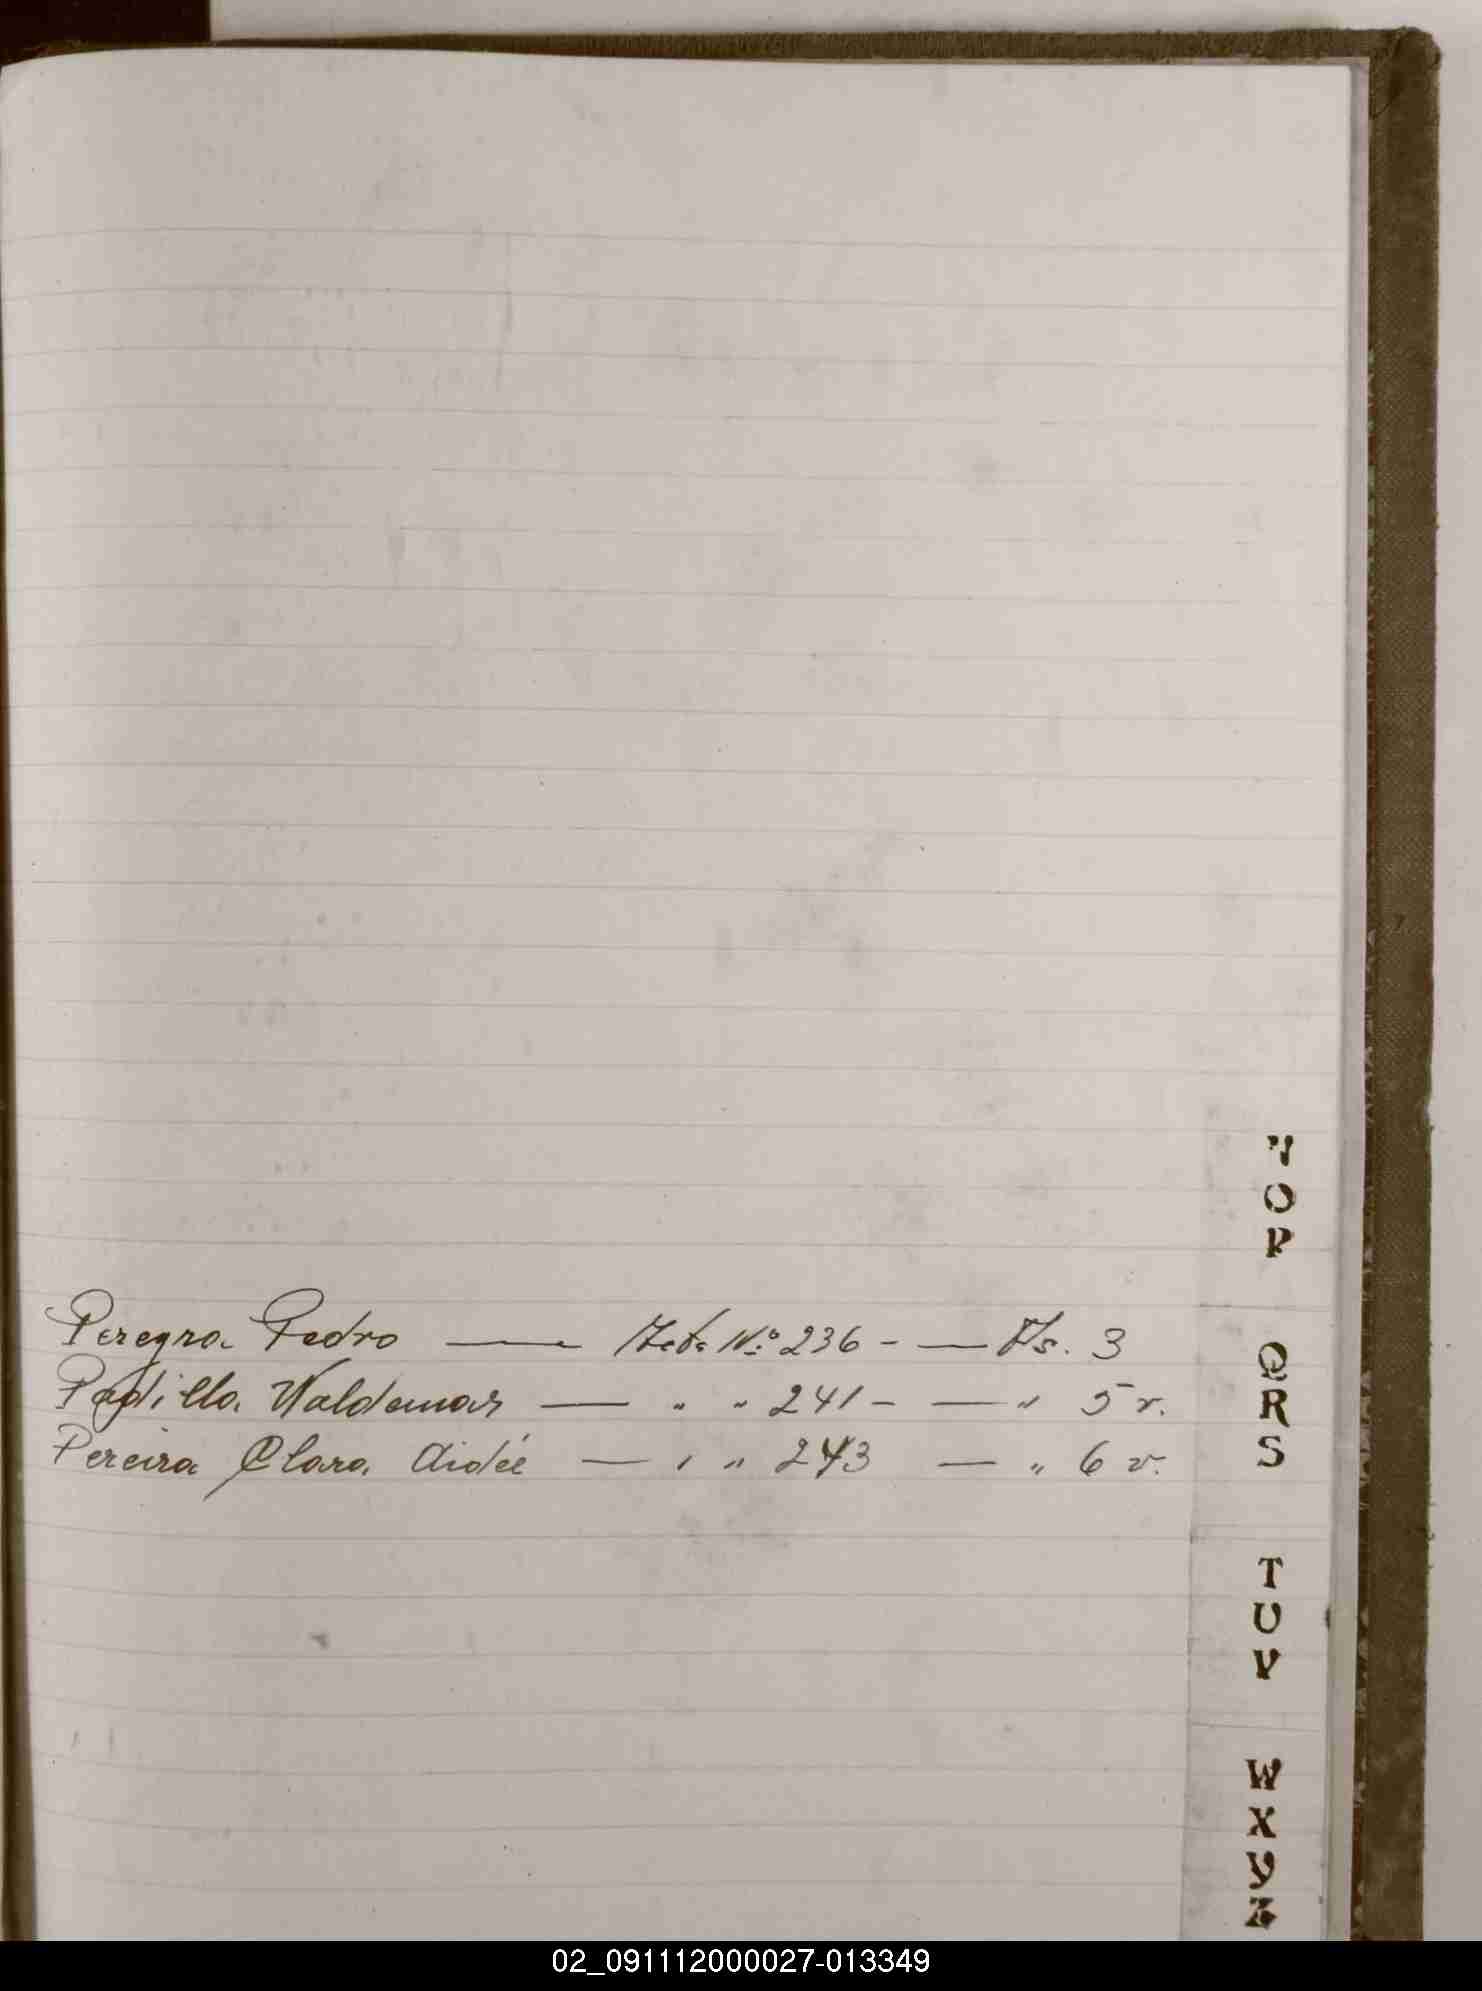 Peregra Pedro — Acta Nº 236 - — Fs. 3
Padilla Waldemar — " " 241 - — " 5 v.
Pereira Clara Aidée — " " 243 — " 6 v.
N
O
P
Q
R
S
T
U
V
W
X
Y
Z
02_091112000027-013349